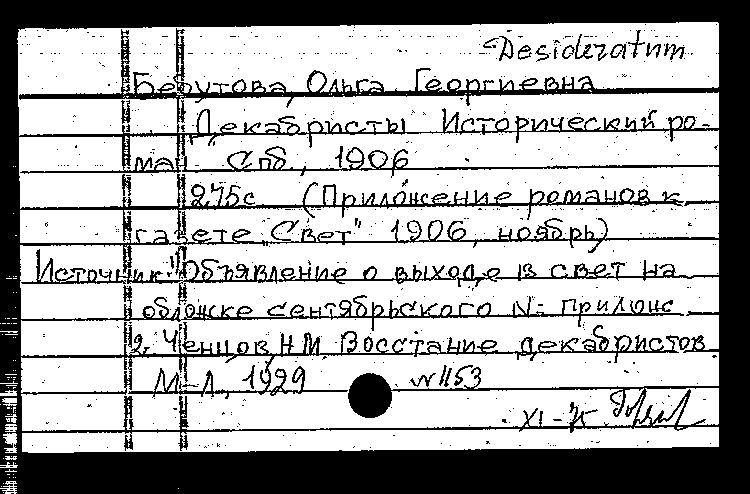 Desideratum
Бебутова, Ольга Георгиевна
Декабристы Исторический ро-
ман Спб., 1906
275с (Приложение романов к
газете "Свет" 1906, ноябрь)
Источник: 1) Объявление о выходе в свет на
обложке сентябрьского №- прилож.
2. Ченцов, Н.М. Восстание декабристов
М-Л., 1929 № 1153
XI-75